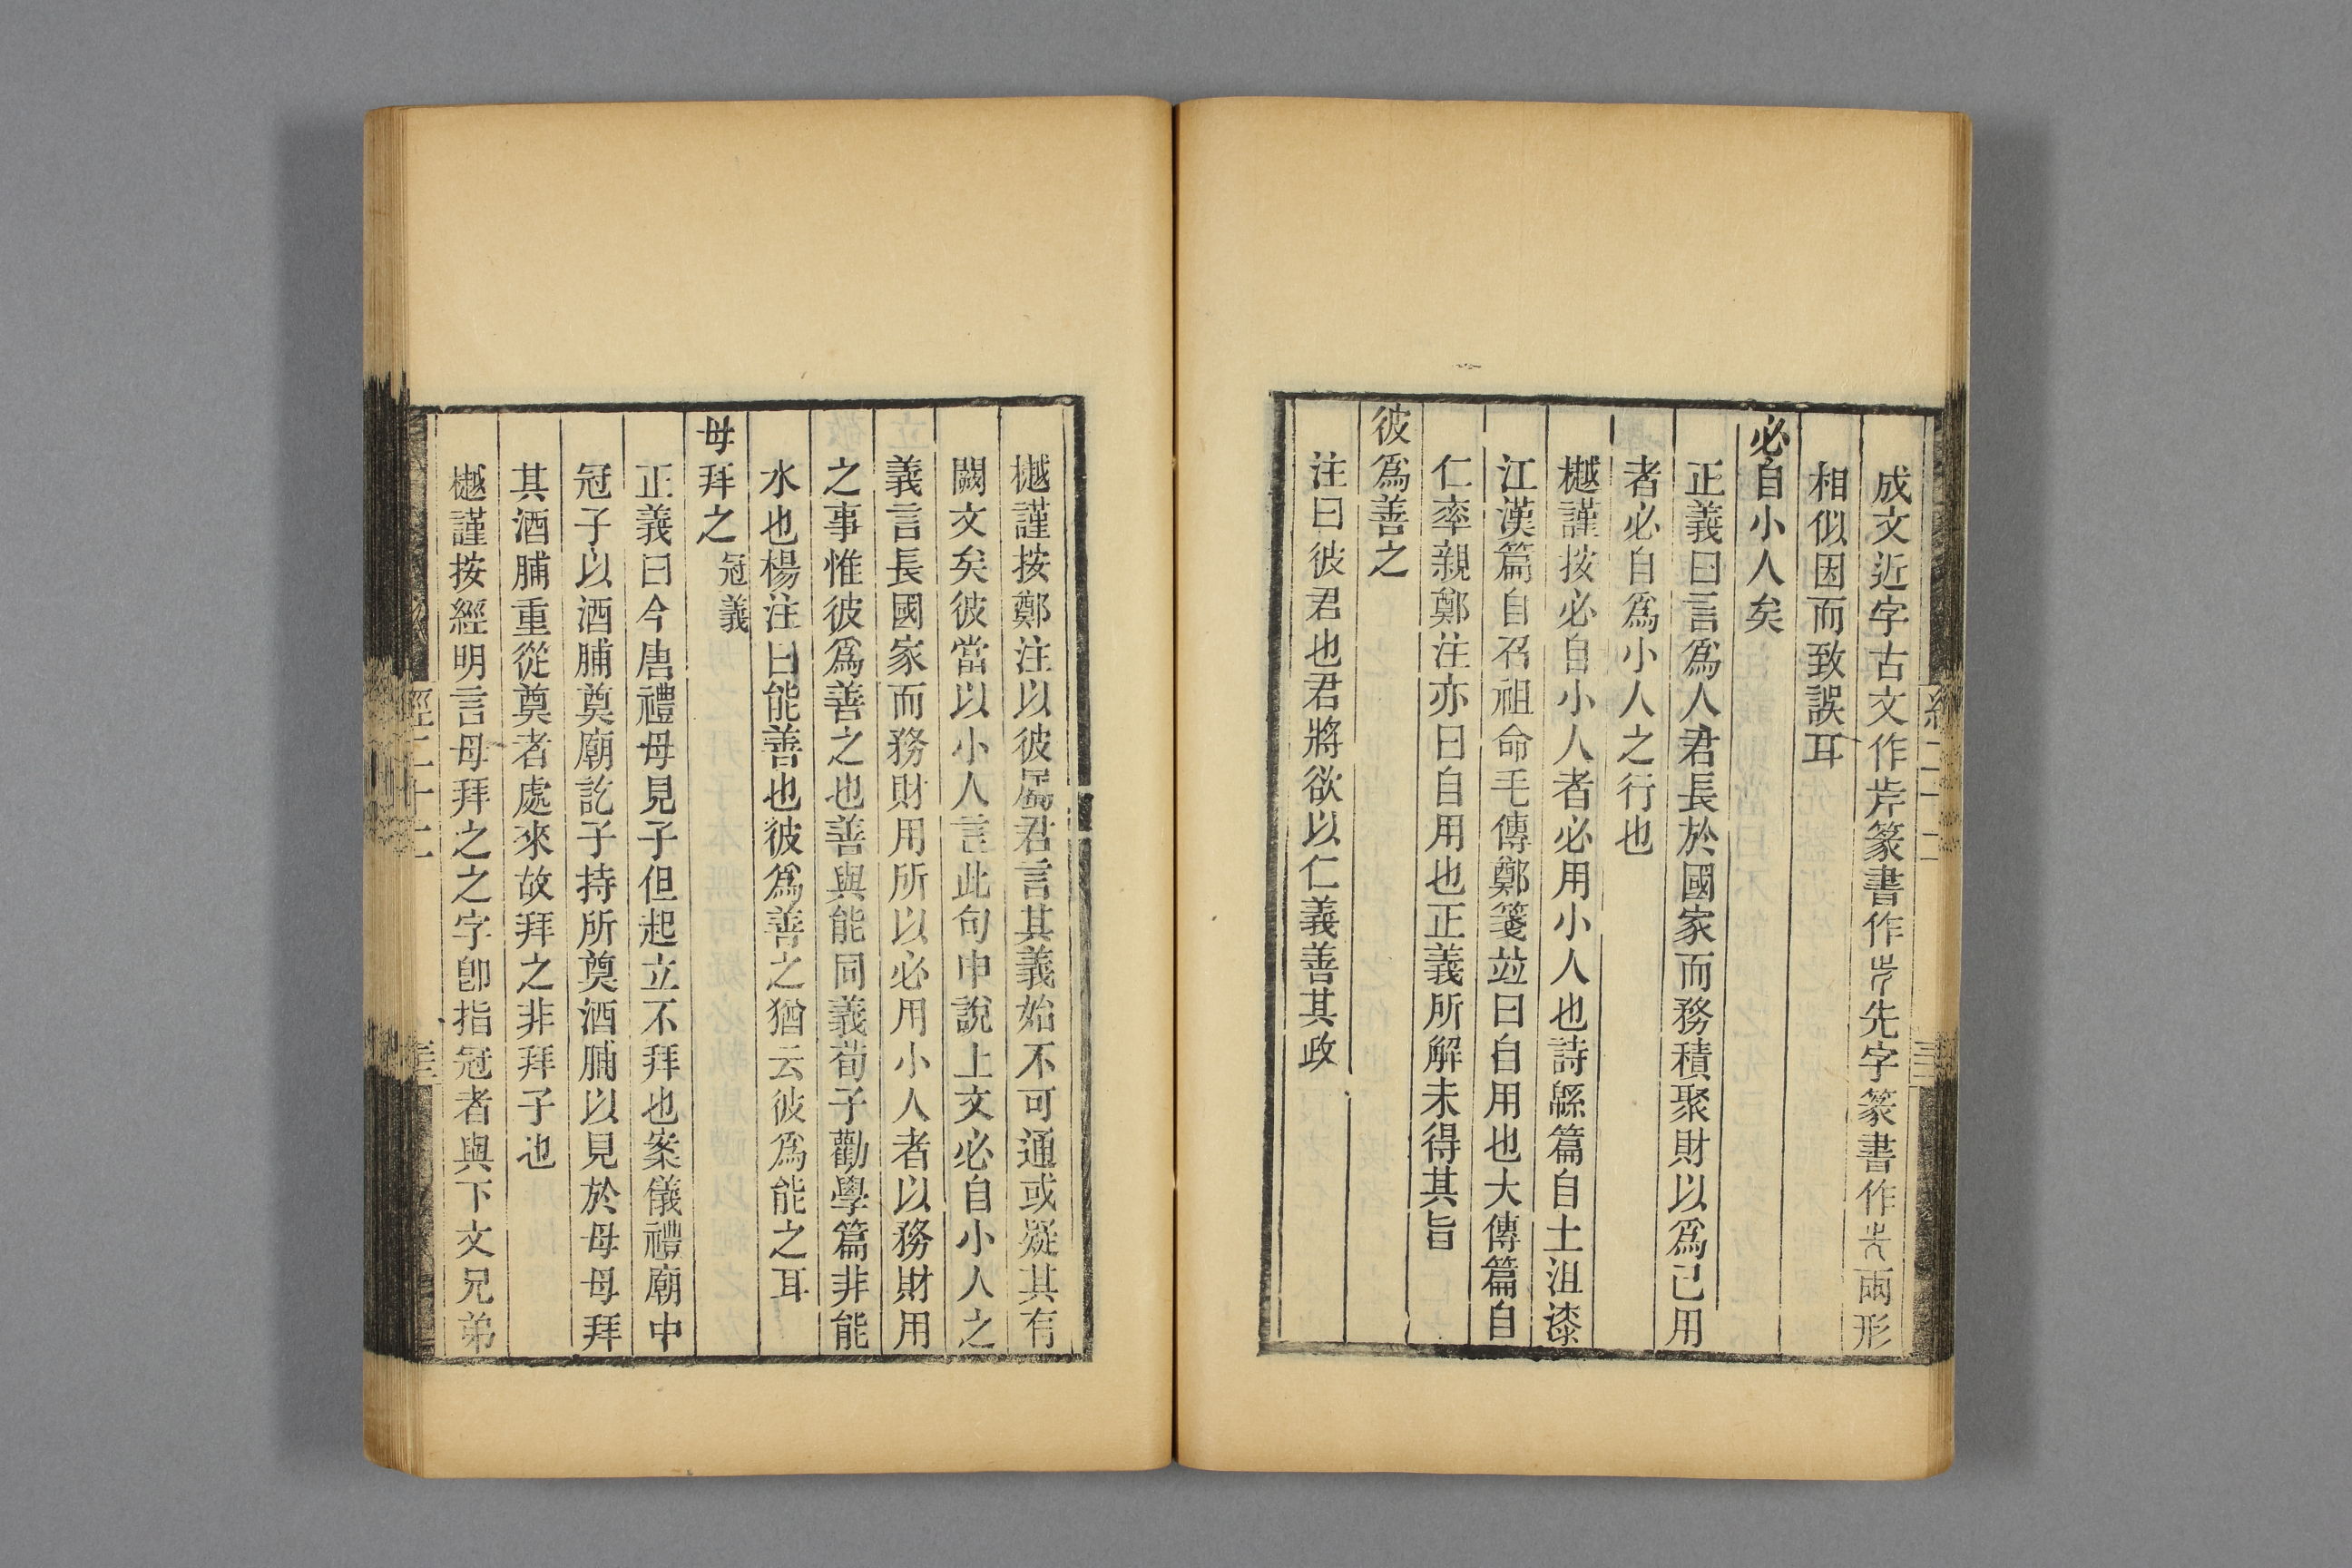 成文近字古文作𣥍篆書作先字篆書作兩形
相似因而致誤耳
必自小人矣
正義曰言爲人君長於國家而務積聚財以爲己用
者必自爲小人之行也
樾謹按必自小人者必用小人也詩緜篇自土沮漆
江漢篇自召祖命毛傳鄭箋竝曰自用也大傳篇自
仁率親鄭注亦曰自用也正義所解未得其旨
彼爲善之
注曰彼君也君將欲以仁義善其政
樾謹按鄭注以彼屬君言其義始不可通或疑其有
闕文矣彼當以小人言此句申說上文必自小人之
義言長國家而務財用所以必用小人者以務財用
之事惟彼爲善之也善與能同義荀子勸學篇非能
水也楊注曰能善也彼爲善之猶云彼爲能之耳
母拜之 冠義
正義曰今唐禮母見子但起立不拜也案儀禮廟中
冠子以酒脯奠廟訖子持所奠酒脯以見於母母拜
其酒脯重從奠者處來故拜之非拜子也
樾謹按經明言母拜之之字卽指冠者與下文兄弟